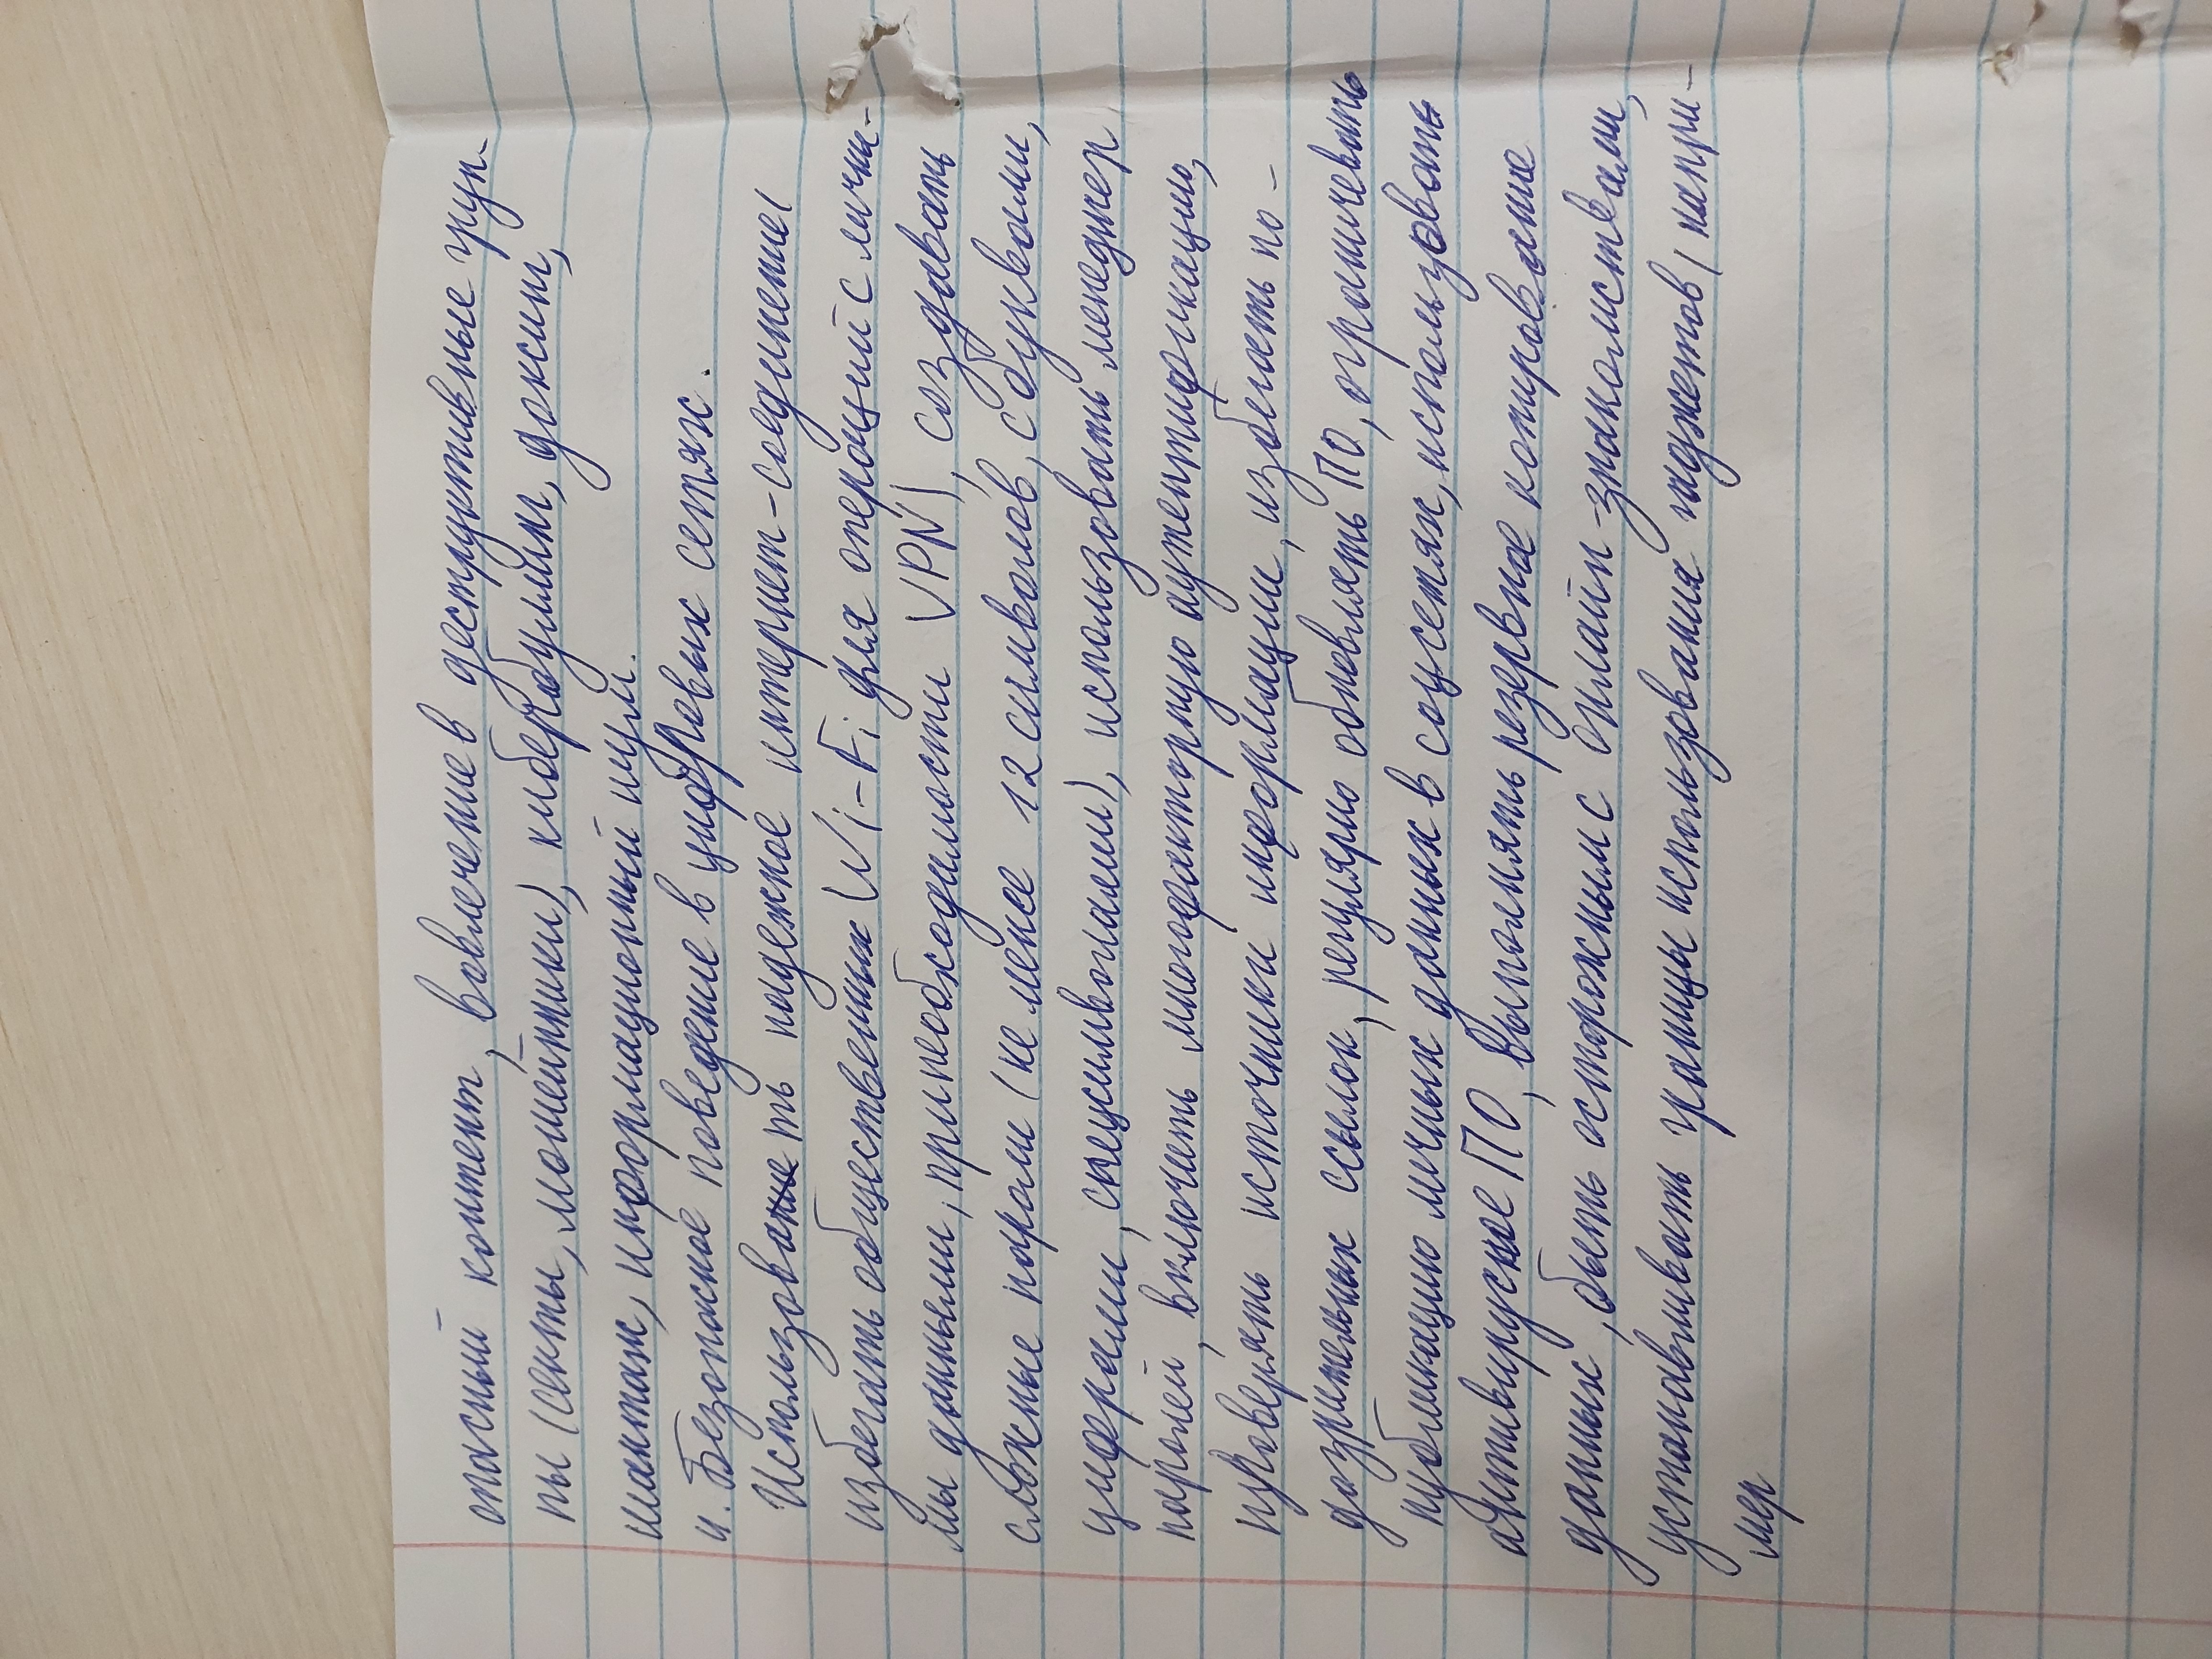 опасный контент, вовлечение в деструктивные груп-
пы (секты, мошейники), кибербуллинг, доксинг,
шантаж, информационный шум.
4. Безопасное поведение в цифровых сетях.
Использовать надежное интернет-соединение (
избегать общественных Wi-Fi для операций с личны-
ми данными, при необходимости VPN), создавать
сложные пароли (не менее 12 символов, с буквами,
цифрами, спецсимволами), использовать менеджер
паролей, включить многофакторную аутентификацию,
проверять источники информации, избегать по-
дозрительных ссылок, регулярно обновлять ПО, ограничевать
публикацию личных данных в соцсетях, использовать
антивирусное ПО, выполнять резервное копирование
данных, быть осторожным с онлайн-знакомствами,
устанавливать границы использования гаджетов (напри-
мер